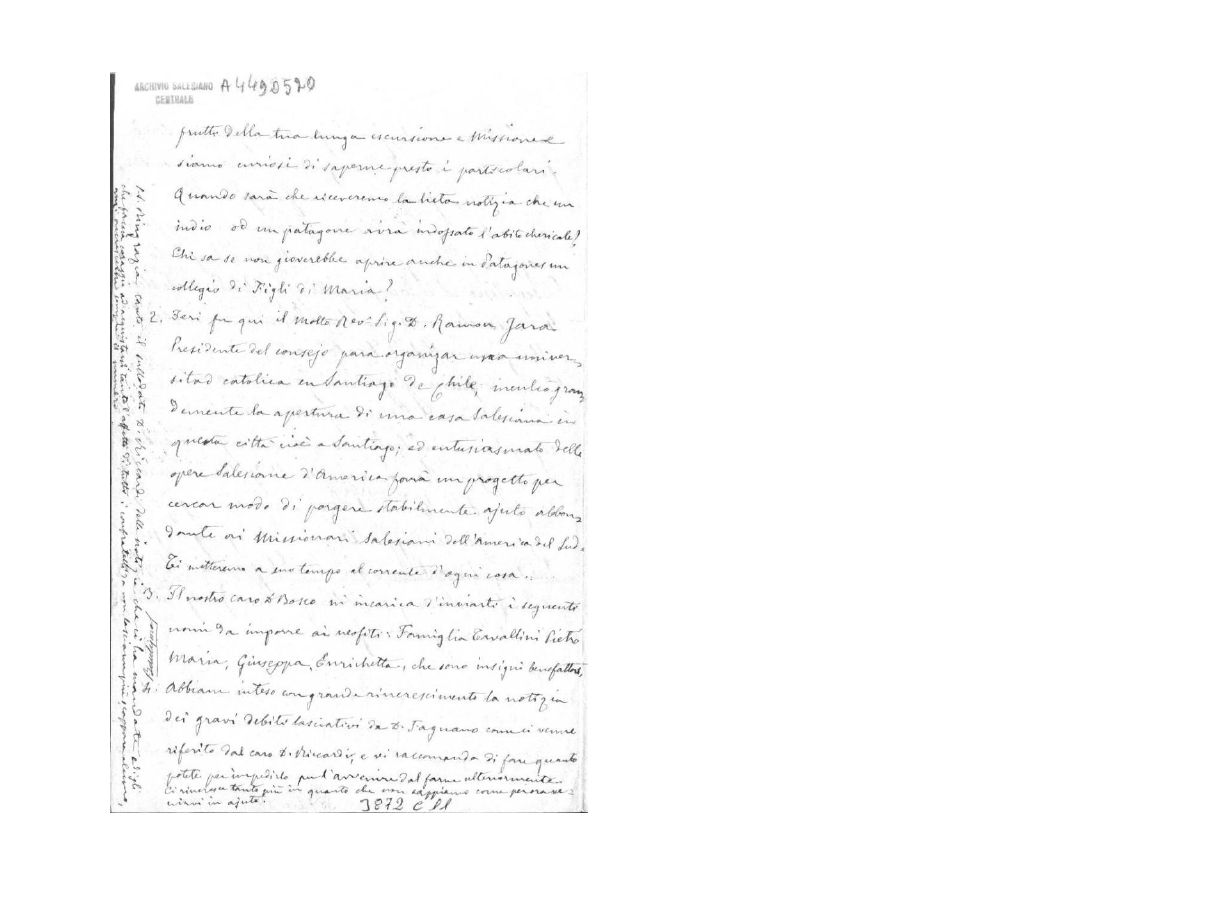 ARCHIVIO SALESIANO
CENTRALE
A4490520
frutto della tua lunga escursione e Missione e
siamo curiosi di saperne presto i particolari.
Quando sarà che riceveremo la lieta notizia che un
indio od un patagone avrà indossato l'abito chericale?
Chi sa se non gioverebbe aprire anche in Patagones un
collegio di Figli di Maria?
2. Ieri fu qui il Molto Rev. Sig. D. Ramon Jara
Presidente del consejo para organizar una univer-
sitad catolica en Santiago de Chile, inculcò gran-
demente la apertura di una casa Salesiana in
questa città cioè a Santiago; ed entusiasmato delle
opere Salesiane d'America farà un progetto per
cercar modo di porgere stabilmente ajuto abbon-
dante ai Missionari Salesiani dell'America del Sud.
Ti metteremo a suo tempo al corrente d'ogni cosa.
3. Il nostro caro D. Bosco mi incarica d'inviarti i seguenti
nomi da imporre ai neofiti: Famiglia Cavallini Pietro
Maria, Giuseppa, Enrichetta, che sono insigni benefattori,
4. Abbiam inteso con grande rincrescimento la notizia
dei gravi debiti lasciativi da D. Fagnano come ci venne
riferito dal caro D. Riccardi, e vi raccomanda di fare quanto
potete per impedirlo per l'avvenire dal farne ulteriormente
Ci rincresce tanto più in quanto che non sappiamo come per ora ve-
nirvi in ajuto.
3872 C 11
P.S. Ringrazia tanto il sullodato D. Riccardi delle notizie che ci ha mandate e digli
che faccia coraggio ad acquistarsi tanto l'affetto di tutti i confratelli e non lasci mai più scappare alcuno,